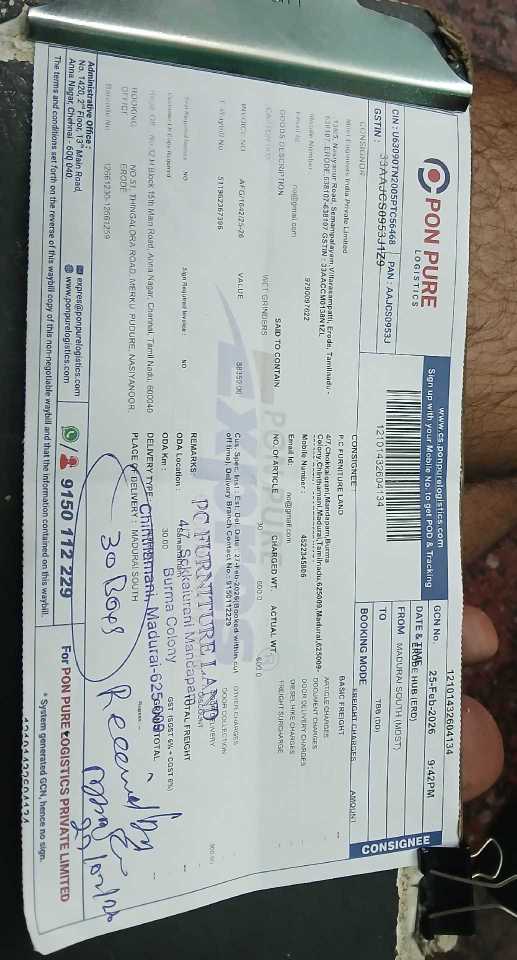 PON PURE
LOGISTICS
www.cs.ponpurelogistics.com
Sign up with your Mobile No. to get POD & Tracking
12101432604134
CIN : U63090TN2005PTC56468 PAN : AAJCS0953J
GSTIN : 33AAJCS0953J1Z9
GCN No. 12101432604134
DATE & TIME 25-Feb-2026 9:42PM
FROM ERODE HUB (ERD)
TO MADURAI SOUTH (MOST)
BOOKING MODE TBB (OD)
CONSIGNEE
CONSIGNOR
Engineers India Private Limited
Nasiyanur Road, Semampalayam, Villarasampatti, Erode, Tamilnadu -
638107, ERODE,638107-638107 GSTIN : 33AACCM0138N1ZL
Mobile Number : 9750097622
Email Id no@gmail.com
CONSIGNEE
P.C FURNITURE LAND
4/7, Chokkalurani, Mandapam, Burma
Colony, Chinthamani, Madurai, Tamilnadu, 625009, Madurai, 625009-
Mobile Number : 4522345806
Email Id: no@gmail.com
FREIGHT CHARGES AMOUNT
BASIC FREIGHT --
ARTICLE CHARGES --
DOCUMENT CHARGES --
DOOR DELIVERY CHARGES --
DIESEL HIKE CHARGES --
FREIGHT SURCHARGE --
GOODS DESCRIPTION SAID TO CONTAIN NO. OF ARTICLE CHARGED WT. ACTUAL WT.
WET GRINDERS 30 600.0 600.0
INVOICE NO AFG/1642/25-26 VALUE 88350.00
E-Waybill No 511962367396
Cus. Spec. Inst : Est. Del. Date : 27-Feb-2026(Booked within cut
off time), Delivery Branch Contact No : 9150112229
REMARKS:
ODA Location:
ODA Km : 30.00
OTHER CHARGES
DOOR COLLECTION
GST (SGST 6% + CGST 6%)
TOTAL FREIGHT
Sign Required Invoice : NO
Customer Copy Required
H Block 15th Main Road, Anna Nagar, Chennai, Tamil Nadu, 600040
DELIVERY TYPE:
BOOKING OFFICE : NO.51, THINGALORA ROAD, MERKU PUDURE, NASIYANOOR, ERODE
PLACE OF DELIVERY : MADURAI SOUTH
12661230-12661259
PC FURNITURE LAND
4/7, Sokkalurani Mandapam
Burma Colony
Chinthamani, Madurai-625009
30 Boxs
Received by
27/02/26
Administrative Office :
No. 1420, 2nd Floor, 13th Main Road,
Anna Nagar, Chennai - 600 040.
expres@ponpurelogistics.com
www.ponpurelogistics.com
9150 112 229
For PON PURE LOGISTICS PRIVATE LIMITED
* System generated GCN, hence no sign.
The terms and conditions set forth on the reverse of this waybill copy of this non-negotiable waybill and that the information contained on this waybill.
12101432604134